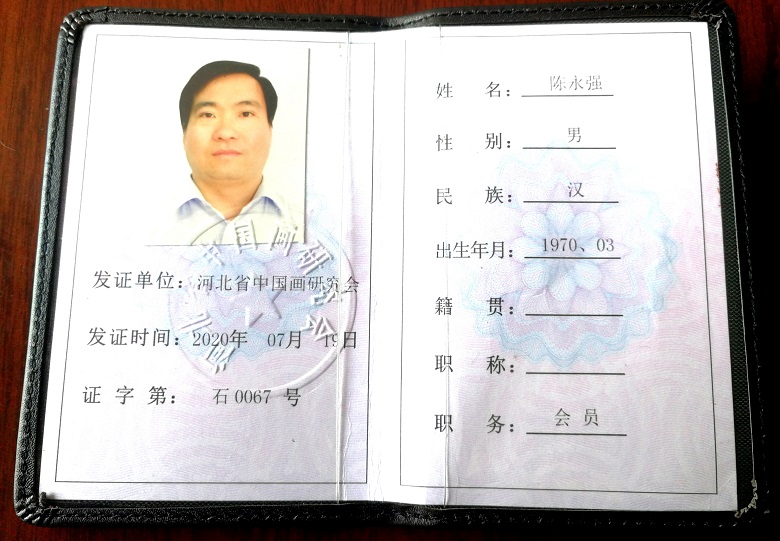 发证单位：河北省中国画研究会
发证时间：2020年 07月 19日
证 字 第： 石0067 号
河北省中国画研究会
姓 名： 陈永强
性 别： 男
民 族： 汉
出生年月： 1970、03
籍 贯：
职 称：
职 务： 会 员